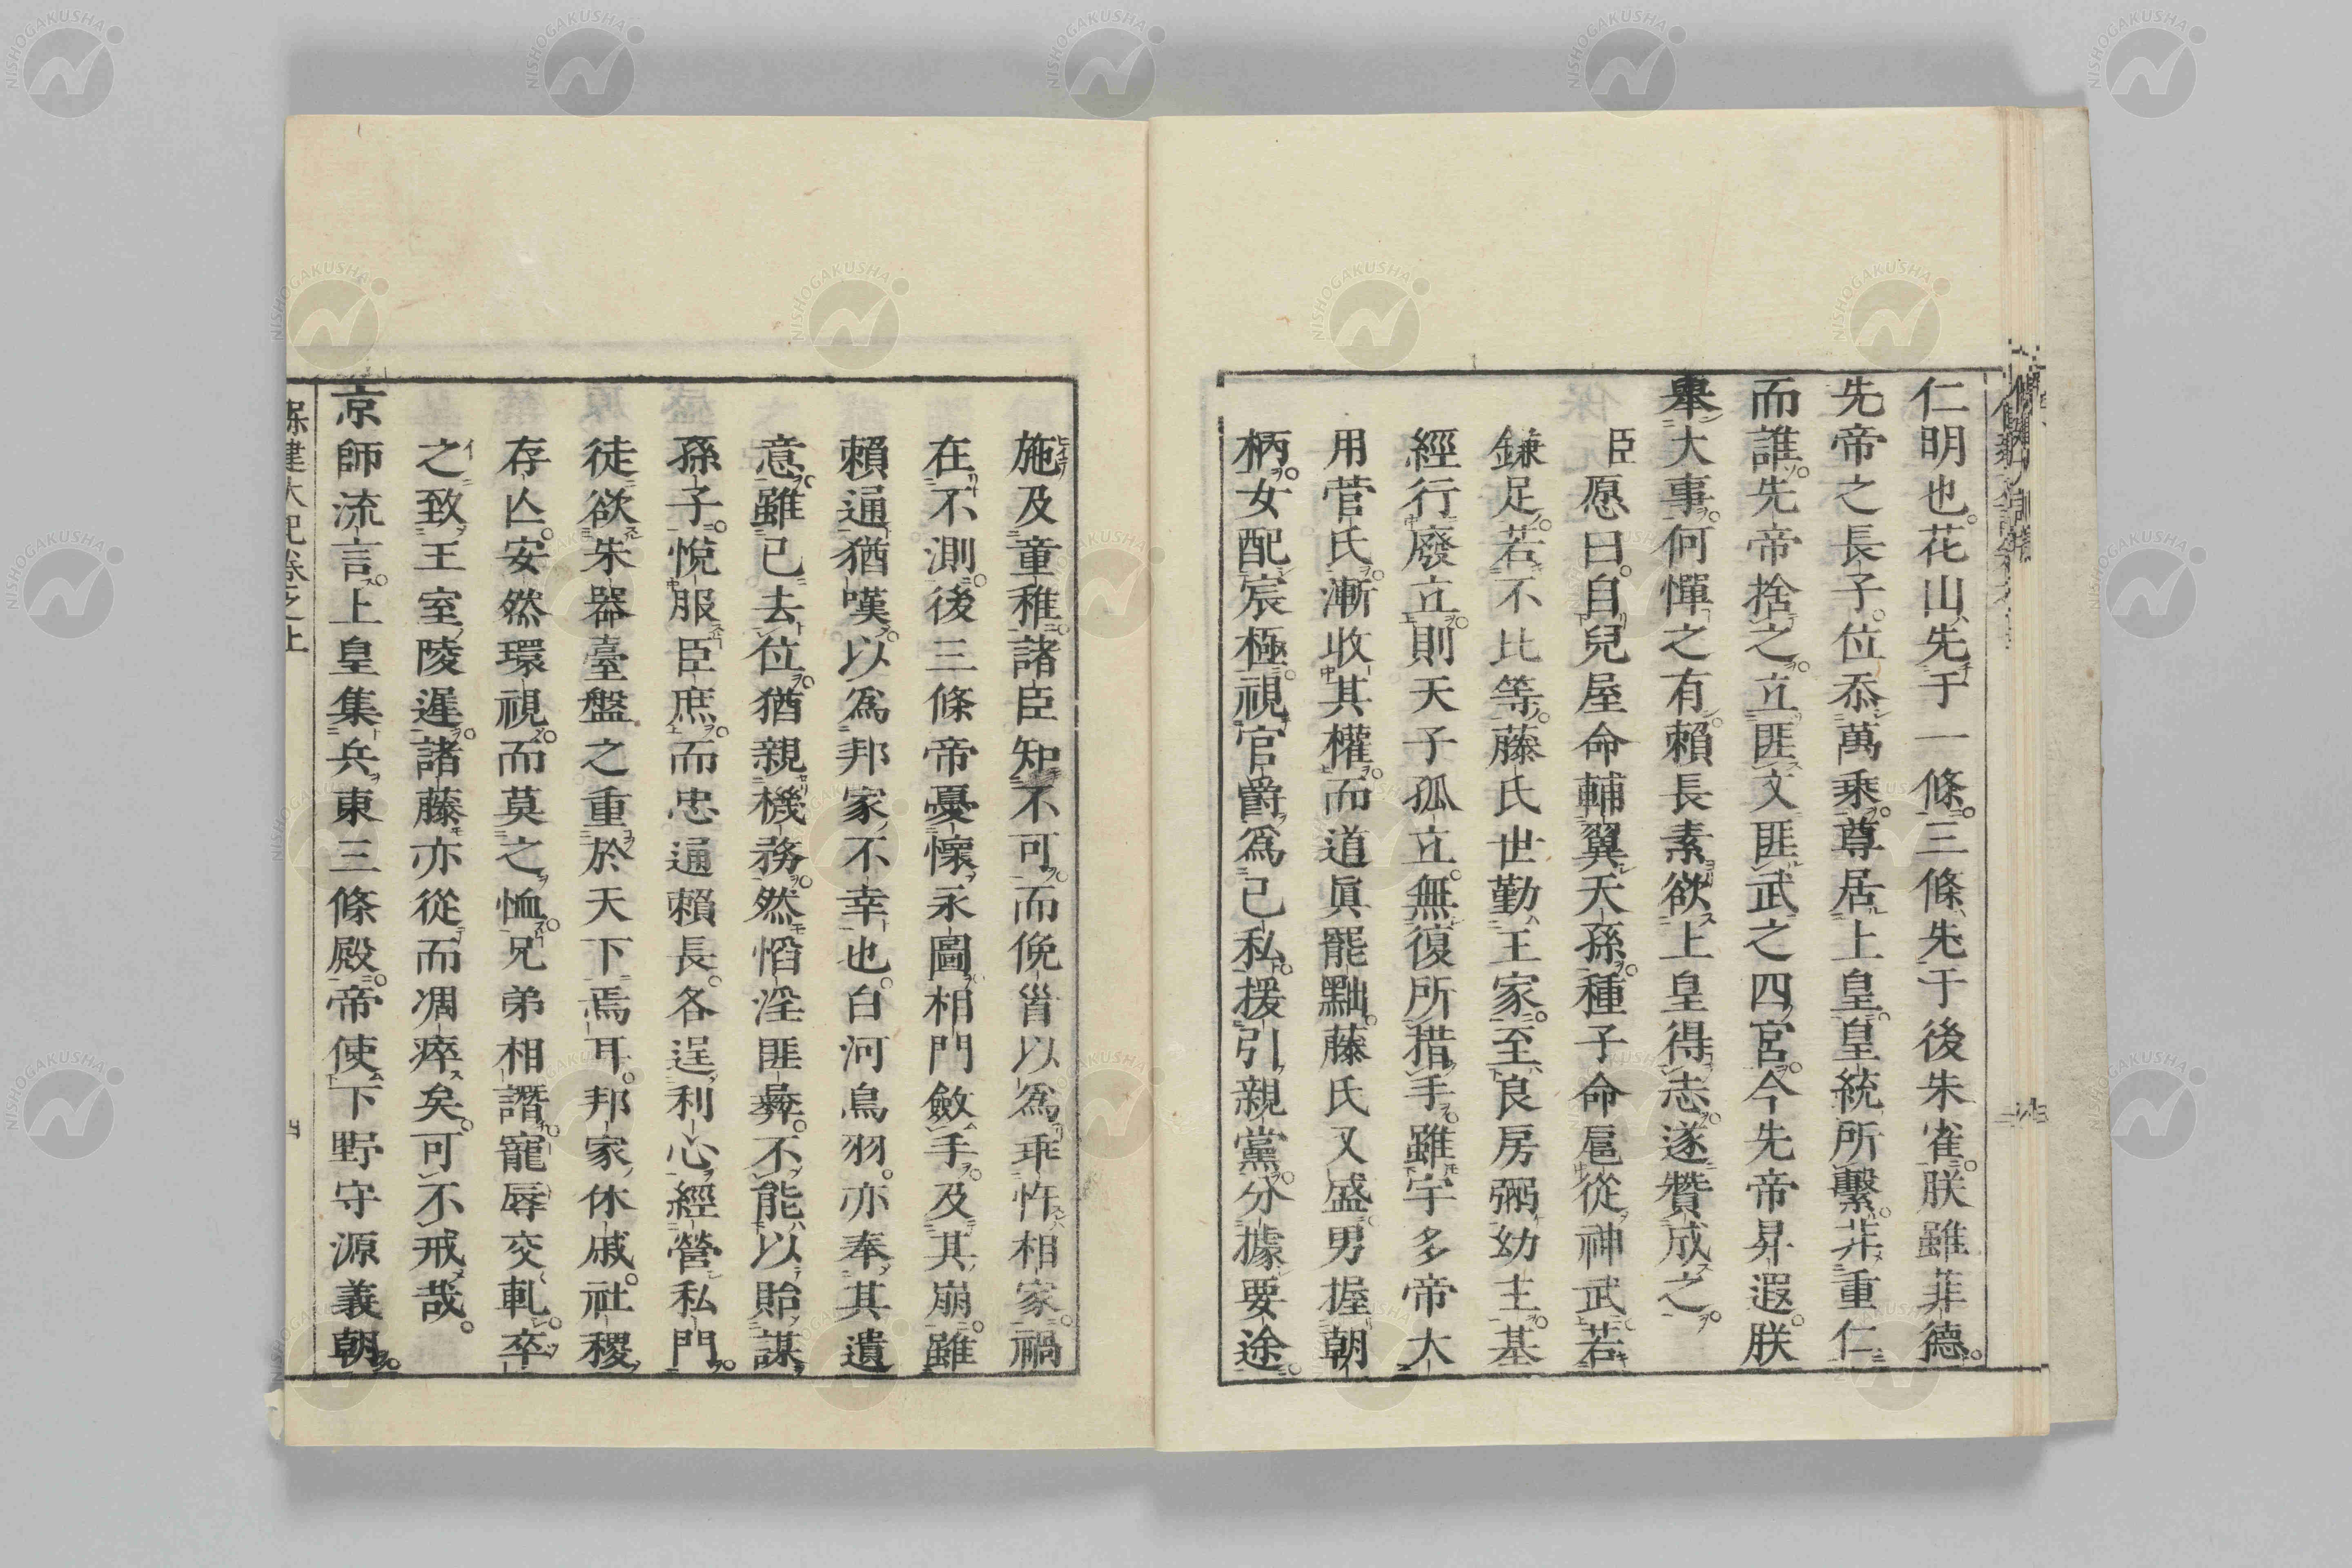 仁明也。花山先于一條。三條先于後朱雀。朕雖菲德。
先帝之長子。位忝萬乘。尊居上皇。皇統所繫。非重仁
而誰。先帝捨之。立匪文匪武之四宮。今先帝昇遐。朕
舉大事。何憚之有。賴長素欲上皇得志。遂贊成之。
臣愿曰。自兒屋命輔翼天孫。種子命扈從神武。若
鎌足。若不比等。藤氏世勤王家。至良房弼幼主。基
經行廢立。則天子孤立。無復所措手。雖宇多帝大
用菅氏。漸收其權。而道眞罷黜。藤氏又盛。男握朝
柄。女配宸極。視官爵爲己私。援引親黨。分據要途。
施及童稚。諸臣知不可。而俛眉以爲乖忤相家。禍
在不測。後三條帝憂懷永圖。相門斂手。及其崩。雖
賴通猶嘆。以爲邦家不幸也。白河鳥羽。亦奉其遺
意。雖已去位。猶親機務。然慆淫匪彝。不能以貽謀
孫子。悅服臣庶。而忠通賴長。各逞利心。經營私門。
徒欲朱器臺盤之重於天下焉耳。邦家休戚。社稷
存亾。安然環視。而莫之恤。兄弟相譖。寵辱交軋。卒
之致王室陵遲。諸藤亦從而凋瘁矣。可不戒哉。
京師流言。上皇集兵東三條殿。帝使下野守源義朝
保建大記卷之上
四
NISHOGAKUSHA